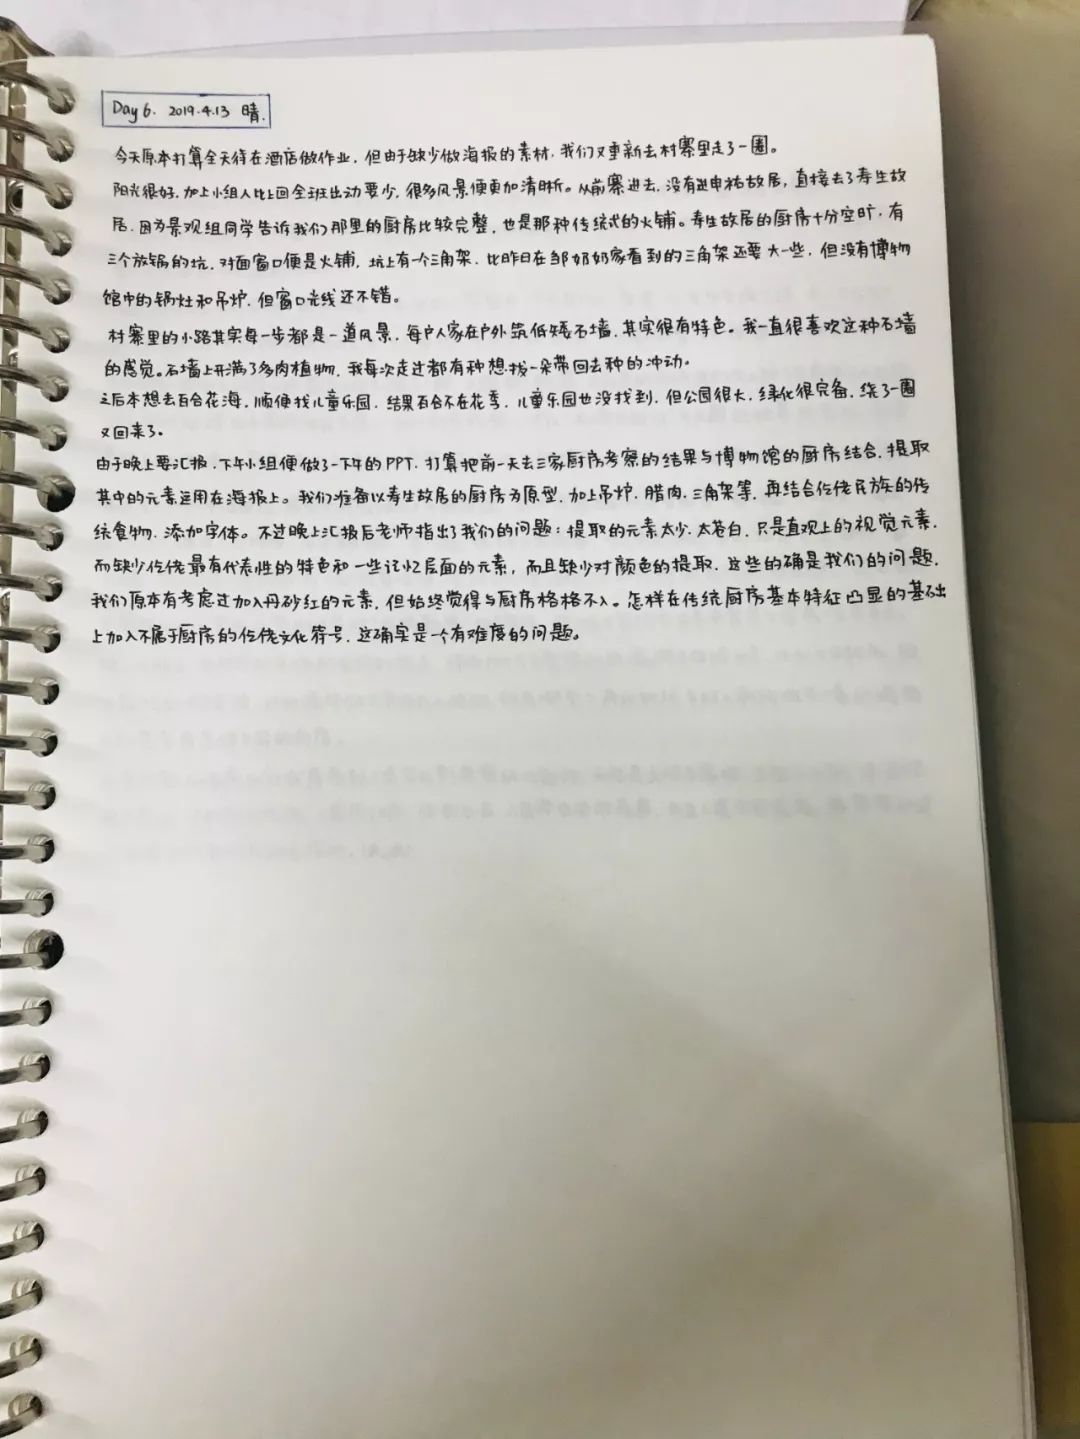 Day 6. 2019.4.13 晴.
今天原本打算全天待在酒店做作业,但由于缺少做海报的素材,我们又重新去村寨里走了一圈。
阳光很好,加上小组人比上回全班出动要少,很多风景便更加清晰。从前寨进去,没有进申祐故居,直接去了寿生故
居,因为景观组同学告诉我们那里的厨房比较完整,也是那种传统式的火铺。寿生故居的厨房十分空旷,有
三个放锅的坑,对面窗口便是火铺,坑上有一个三角架,比昨日在邹奶奶家看到的三角架还要大一些,但没有博物
馆中的锅灶和吊炉,但窗口光线还不错。
村寨里的小路其实每一步都是一道风景,每户人家在户外筑低矮石墙,其实很有特色。我一直很喜欢这种石墙
的感觉。石墙上开满了多肉植物,我每次走过都有种想拔一朵带回去种的冲动。
之后本想去百合花海,顺便找儿童乐园,结果百合不在花季,儿童乐园也没找到,但公园很大,绿化很完备,绕了一圈
又回来了。
由于晚上要汇报,下午小组便做了一下午的PPT,打算把前一天去三家厨房考察的结果与博物馆的厨房结合,提取
其中的元素运用在海报上。我们准备以寿生故居的厨房为原型,加上吊炉,腊肉,三角架等,再结合仡佬民族的传
统食物,添加字体。不过晚上汇报后老师指出了我们的问题:提取的元素太少,太苍白,只是直观上的视觉元素,
而缺少仡佬最有代表性的特色和一些记忆层面的元素,而且缺少对颜色的提取,这些的确是我们的问题,
我们原本有考虑过加入丹砂红的元素,但始终觉得与厨房格格不入。怎样在传统厨房基本特征凸显的基础
上加入不属于厨房的仡佬文化符号,这确实是一个有难度的问题。